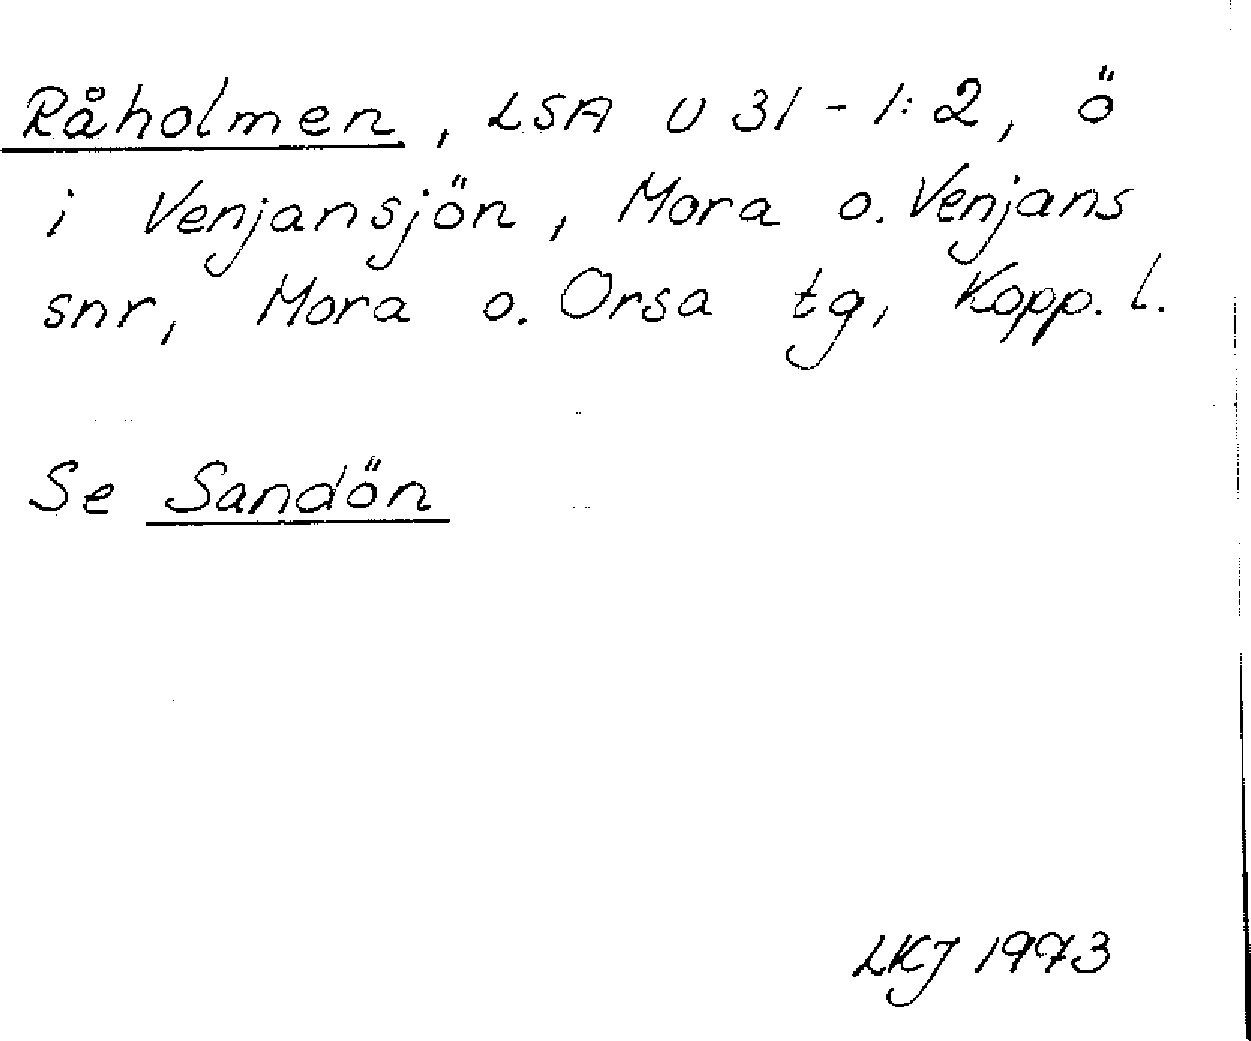 Råholmen, LSA U 31-1:2, ö
i Venjansjön, Mora o. Venjans
snr, Mora o. Orsa tg, Kopp. l.
Se Sandön
LKJ 1973